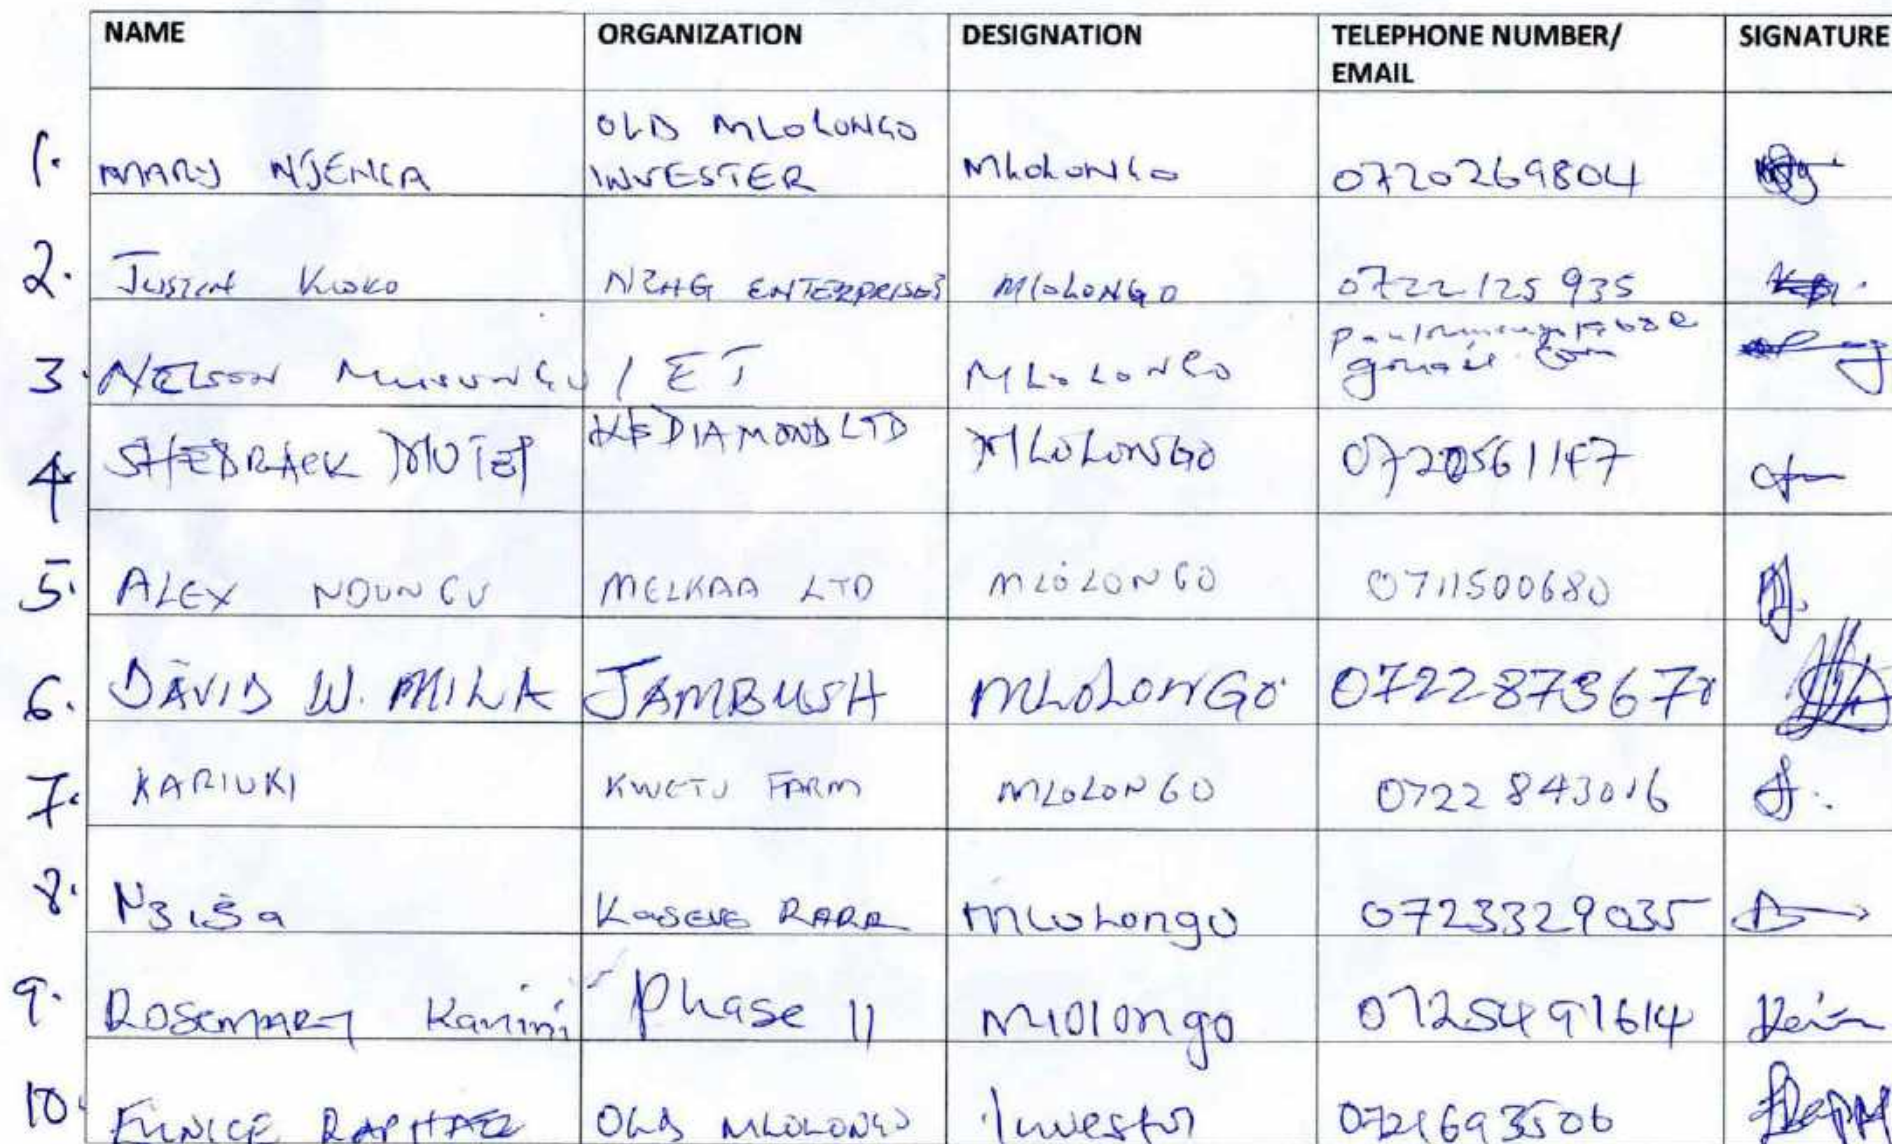 NAME ORGANIZATION DESIGNATION TELEPHONE NUMBER/ SIGNATURE
EMAIL
OLD MLOLONGO
1. MARY NJENGA INVESTER MLOLONGO 0720269804
2. JUSTIN KIOKO ENTERPRISES MLOLONGO 0722125935
3. NELSON / ET MLOLONGO
gmail.com
4 SHEDRACK DIAMOND LTD MLOLONGO
5. ALEX NDUNGU MELKAA LTD MLOLONGO 0711500680
6. DAVID W. JAMBUSH MLOLONGO
7. KARIUKI KWETU FARM MLOLONGO 0722 843016
8. MLOLONGO 0723329035
9. ROSEMARY Kanini Phase 11 mlolongo 0725491614
10. EUNICE RAPHAEL OLD MLOLONGO Investor 0721693506